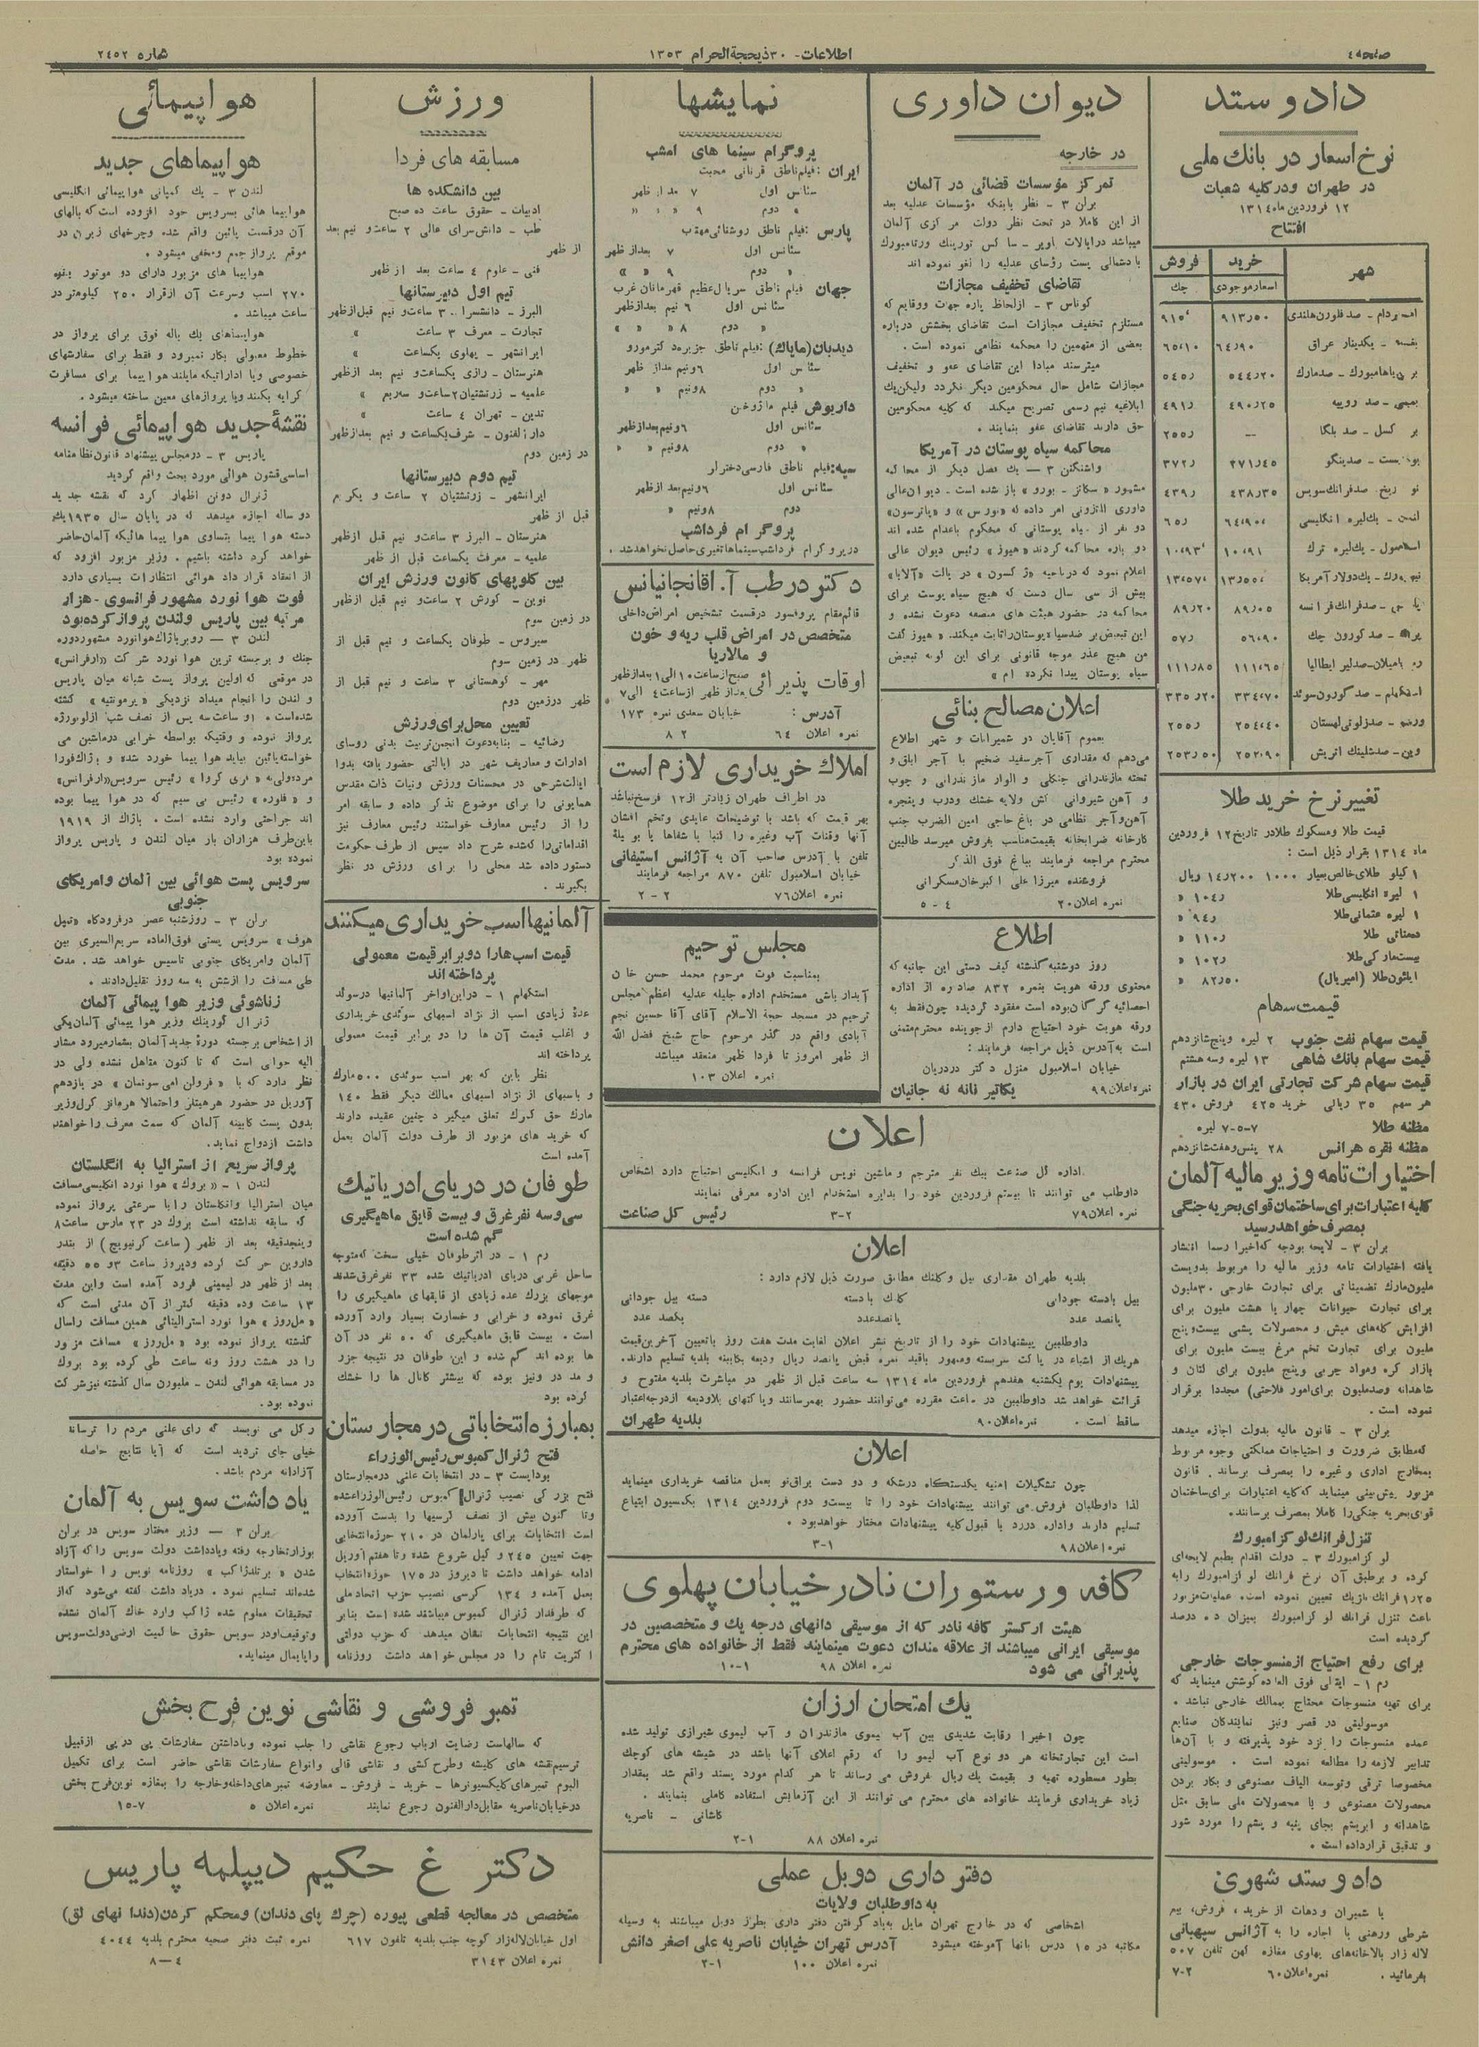 صفحه ٤
اطلاعات - ٣٠ ذیحجة الحرام ١٣٥٣
شماره ٢٤٥٢
داد و ستد
نرخ اسعار در بانك ملی
در طهران و در کلیه شعبات
١٢ فروردین ماه ١٣١٤
افتتاح
شهر خرید فروش
اسعار موجودی چك
صد فلورن هلندی ٩١٣٫٥٠
یکدینار عراق ٦٤٫٩٠
صد مارك ٥٤٤٫٢٠ ٥٤٥٫
بمبئی - صد روپیه ٤٩٠٫٢٥ ٤٩١٫
صد بلگا — ٢٥٥٫
صد فرانك سویس ٤٣٨٫٣٥ ٤٣٩٫
یك لیره انگلیسی
یك لیره ترك
یك دلار آمریکا
صد فرانك فرانسه ٨٩٫٠٥ ٨٩٫٢٠
صد کورون چك ٥٧٫
صد لیر ایطالیا ١١١٫٨٥
صد کورون سوئد
صد زلوتی لهستان ٢٥٥٫
وین - صد شلینك اتریش ٢٥٣٫٥٠
تغییر نرخ خرید طلا
قیمت طلا و مسکوك طلا در تاریخ ١٢ فروردین
ماه ١٣١٤ بقرار ذیل است :
١ کیلو طلای خالص بعیار ١٠٠٠ ریال
١ لیره انگلیسی طلا ١٠٤٫ »
١ لیره عثمانی طلا ٩٤٫ »
١١٠٫ »
بیست مارکی طلا ١٠٢٫ »
(امپریال) ٨٢٫٥٠ »
قیمت سهام
قیمت سهام نفت جنوب ٢ لیره و پنج شانزدهم
قیمت سهام بانك شاهی ١٣ لیره و سه هشتم
قیمت سهام شرکت تجارتی ایران در بازار
هر سهم ٣٥ ریالی خرید ٤٢٥ فروش ٤٣٠
مظنه طلا ٧-٥-٧ لیره
مظنه نقره هر انس ٢٨ پنس و هفت شانزدهم
اختیارات نامه وزیر مالیه آلمان
کلیه اعتبارات برای ساختمان قوای بحریه جنگی
بمصرف خواهد رسید
برلن ٣ - لایحه بودجه که اخیرا رسما انتشار
یافته اختیارات نامه وزیر مالیه را مربوط بدویست
ملیون مارك تضمیناتی برای تجارت خارجی ٣٠ ملیون
برای تجارت حیوانات چهار یا هشت ملیون برای
افزایش کله های میش و محصولات پشمی بیست و پنج
ملیون برای تجارت تخم مرغ بیست ملیون برای
بازار کره و مواد چربی و پنج ملیون برای کتان و
شاهدانه و صد ملیون برای امور فلاحتی) مجددا برقرار
نموده است .
برلن ٣ - قانون مالیه بدولت اجازه میدهد
که مطابق ضرورت و احتیاجات مملکتی وجوه مربوط
بمخارج اداری و غیره را بمصرف برساند . قانون
مزبور پیش بینی مینماید که کلیه اعتبارات برای ساختمان
قوای بحریه جنگی را کاملا بمصرف برسانند .
تنزل فرانك لوکزامبورك
لوکزامبورك ٣ - دولت اقدام بطبع لایحه ای
کرده و بر طبق آن نرخ فرانك لوکزامبورك را به
١٫٢٥ فرانك بلژیك تعیین نموده است .
باعث تنزل فرانك لوکزامبورك بمیزان ده درصد
گردیده است
برای رفع احتیاج از منسوجات خارجی
رم ١ - ایتالی فوق العاده کوشش مینماید که
برای تهیه منسوجات محتاج بممالك خارجی نباشد .
موسولینی در قصر ونیز نمایندکان صنایع
عمده منسوجات را نزد خود پذیرفته و با آن ها
تدابیر لازمه را مطالعه نموده است . موسولینی
مخصوصا ترقی و توسعه الیاف مصنوعی و بکار بردن
محصولات مصنوعی و یا محصولات ملی سابق مثل
شاهدانه و ابریشم بجای پنبه و پشم را مورد شور
و تدقیق قرار داده است .
داد و ستد شهری
با شمیران و دهات از خرید ، فروش، بیع
شرطی و رهنی با اجاره را به آژانس سپهبانی
لاله زار بالاخانه های پهلوی مغازه کهن تلفن ٥٠٧
بفرمائید . نمره اعلان ٦٠ ٢-٧
دیوان داوری
در خارجه
تمرکز مؤسسات قضائی در آلمان
برلن ٣ - نظر باینکه مؤسسات عدلیه بعد
از این کاملا در تحت نظر دولت مرکزی آلمان
میباشد در ایالات باویر - ساکس تورینك ورتامبورك
بادشمالی پست رؤسای عدلیه را لغو نموده اند
تقاضای تخفیف مجازات
کوناس ٣ - از لحاظ پاره جهات و وقایع که
مستلزم تخفیف مجازات است تقاضای بخشش درباره
بعضی از متهمین را محکمه نظامی نموده است .
میترسند مبادا این تقاضای عفو و تخفیف
مجازات شامل حال محکومین دیگر نگردد ولیکن یك
ابلاغیه نیم رسمی تصریح میکند که کلیه محکومین
حق دارند تقاضای عفو بنمایند .
محاکمه سیاه پوستان در آمریکا
واشنگتن ٣ - یك فصل دیگر از محاکمه
مشهور باز شده است . دیوان عالی
داوری اتازونی امر داده که «نورس» و «پاترسون»
دو نفر از سیاه پوستانی که محکوم باعدام شده اند
دو باره محاکمه گردند «هیوز» رئیس دیوان عالی
اعلام نمود که در ناحیه «ژکسون» در ایالت «آلاباما»
بیش از سی سال است که هیچ سیاه پوست برای
محاکمه در حضور هیئت های منصفه دعوت نشده و
این تبعیض بر ضد سیاه پوستان را ثابت میکند . «هیوز» گفت
من هیچ عذر موجه قانونی برای این گونه تبعیض
سیاه پوستان پیدا نکرده ام »
اعلان مصالح بنائی
بعموم آقایان در شمیرانات و شهر اطلاع
میدهم که مقداری آجر سفید ضخیم با آجر ابلق و
تخته مازندرانی جنگلی و الوار مازندرانی و چوب
و آهن شیروانی کش ولایه خشك و درب و پنجره
آهن و آجر نظامی در باغ حاجی امین الضرب جنب
کارخانه ضرابخانه بقیمت مناسب بفروش میرسد طالبین
محترم مراجعه فرمایند بباغ فوق الذکر
فروشنده میرزا علی اکبر خان مسکرانی
نمره اعلان ٢٠ ٤ - ٥
اطلاع
روز دوشنبه گذشته کیف دستی این جانبه که
محتوی ورقه هویت بنمره ٨٣٢ صادره از اداره
احصائیه گرگان بوده است مفقود گردیده چون فقط به
ورقه هویت خود احتیاج دارم از جوینده محترم متمنی
است به آدرس ذیل مراجعه فرمایند :
خیابان اسلامبول منزل دکتر دردریان
نمره اعلان ٩٩ یکاتیر نانه نه جانیان
نمایشها
پروگرام سینما های امشب
ایران : فیلم ناطق قربانی محبت
سئانس اول ٧ بعد از ظهر
» دوم ٩ » » »
پارس : فیلم ناطق روشنائی مهتاب
سئانس اول ٧ بعد از ظهر
» دوم ٩ » »
جهان فیلم ناطق سریال عظیم قهرمانان غرب
سئانس اول ٦ نیم بعد از ظهر
» دوم ٨ » » »
دیدبان (مایاك) : فیلم ناطق جزیره دکتر مورو
سئانس اول ٦ و نیم بعد از ظهر
» دوم ٨ و نیم » »
داریوش فیلم مازوخین
سئانس اول ٦ و نیم بعد از ظهر
» دوم ٨ و نیم » »
سپه : فیلم ناطق فارسی دختر لر
سئانس اول ٦ و نیم بعد از ظهر
دوم ٨ و نیم »
پروگرام فردا شب
در پروگرام فردا شب سینماها تغییری حاصل نخواهد شد .
دکتر در طب آ. آقانجانیانس
قائم مقام پروفسور در قسمت تشخیص امراض داخلی
متخصص در امراض قلب ریه و خون
و مالاریا
اوقات پذیرائی صبح از ساعت ١٠ الی ١ بعد از ظهر
بعد از ظهر از ساعت ٤ الی ٧
آدرس : خیابان سعدی نمره ١٧٣
نمره اعلان ٦٤ ٢ ٨
املاك خریداری لازم است
در اطراف طهران زیادتر از ١٢ فرسخ نباشد
بهر قیمت که باشد با توضیحات عایدی و تخم افشان
آنها و قنات آب و غیره را کتبا یا شفاها یا بوسیلة
تلفن با آدرس صاحب آن به آژانس استیفانی
خیابان اسلامبول تلفن ٨٧٠ مراجعه فرمایند
نمره اعلان ٧٦ ٢ - ٢
مجلس ترحیم
بمناسبت فوت مرحوم محمد حسن خان
آبدار باشی مستخدم اداره جلیله عدلیه اعظم مجلس
ترحیم در مسجد حجة الاسلام آقای آقا حسین نجم
آبادی واقع در گذر مرحوم حاج شیخ فضل الله
از ظهر امروز تا فردا ظهر منعقد میباشد
نمره اعلان ١٠٣
اعلان
اداره کل صناعت بیك نفر مترجم و ماشین نویس فرانسه و انگلیسی احتیاج دارد اشخاص
داوطلب می توانند تا بیستم فروردین خود را بدایره استخدام این اداره معرفی نمایند
نمره اعلان ٧٩ ٢-٣ رئیس کل صناعت
اعلان
بلدیه طهران مقداری بیل و کلنك مطابق صورت ذیل لازم دارد :
بیل با دسته جودانی کلنك با دسته دسته بیل جودانی
پانصد عدد پانصد عدد یکصد عدد
داوطلبین پیشنهادات خود را از تاریخ نشر اعلان لغایت مدت هفت روز با تعیین آخرین قیمت
هریك از اشیاء در پاکت سربسته و ممهور باقید نمره قبض پانصد ریال ودیعه بکابینه بلدیه تسلیم دارند .
پیشنهادات یوم یکشنبه هفدهم فروردین ماه ١٣١٤ سه ساعت قبل از ظهر در مباشرت بلدیه مفتوح و
قرائت خواهد شد داوطلبین در ساعت مقرره می توانند حضور بهمرسانند و پاکتهای بلاودیعه از درجه اعتبار
ساقط است . نمره اعلان ٩٠ بلدیه طهران
اعلان
چون تشکیلات امنیه یکدستگاه درشکه و دو دست یراق نو بعمل مناقصه خریداری مینماید
لذا داوطلبان فروش می توانند پیشنهادات خود را تا بیست و دوم فروردین ١٣١٤ بکمسیون ابتیاع
تسلیم دارند و اداره در رد یا قبول کلیه پیشنهادات مختار خواهد بود .
نمره اعلان ٩٨ ١-٣
کافه و رستوران نادر خیابان پهلوی
هیئت ارکستر کافه نادر که از موسیقی دانهای درجه یك و متخصصین در
موسیقی ایرانی میباشند از علاقه مندان دعوت مینمایند فقط از خانواده های محترم
پذیرائی می شود نمره اعلان ٩٨ ١-١٠
یك امتحان ارزان
چون اخیرا رقابت شدیدی بین آب لیموی مازندران و آب لیموی شیرازی تولید شده
است این تجارتخانه هر دو نوع آب لیمو را که رقم اعلای آنها باشد در شیشه های کوچك
بطور مسطوره تهیه و بقیمت یك ریال بفروش می رساند تا هر کدام مورد پسند واقع شد بمقدار
زیاد خریداری فرمایند خانواده های محترم می توانند از این آزمایش استفاده کاملی بنمایند .
کاشانی - ناصریه
نمره اعلان ٨٨ ١-٢
دفتر داری دوبل عملی
به داوطلبان ولایات
اشخاصی که در خارج تهران مایل بیاد گرفتن دفتر داری بطرز دوبل میباشند به وسیله
مکاتبه در ١٥ درس بآنها آموخته میشود آدرس تهران خیابان ناصریه علی اصغر دانش
نمره اعلان ١٠٠ ١-٢
ورزش
مسابقه های فردا
بین دانشکده ها
ادبیات - حقوق ساعت ده صبح
طب - دانش سرای عالی ٢ ساعت و نیم بعد
از ظهر
فنی - علوم ٤ ساعت بعد از ظهر
تیم اول دبیرستانها
البرز - دانشسرا ٣ ساعت و نیم قبل از ظهر
تجارت - معرفت ٣ ساعت »
ایرانشهر - پهلوی یکساعت »
هنرستان - رازی یکساعت و نیم بعد از ظهر
علمیه - زرتشتیان ٢ ساعت و سه ربع »
تدین - تهران ٤ ساعت »
دارالفنون - شرف یکساعت و نیم بعد از ظهر
در زمین دوم
تیم دوم دبیرستانها
ایرانشهر - زرتشتیان ٢ ساعت و یکربع
قبل از ظهر
هنرستان - البرز ٣ ساعت و نیم قبل از ظهر
علمیه - معرفت یکساعت قبل از ظهر
بین کلوپهای کانون ورزش ایران
نوین - کورش ٢ ساعت و نیم قبل از ظهر
در زمین سوم
سیروس - طوفان یکساعت و نیم قبل از
ظهر در زمین سوم
مهر - کوهستانی ٣ ساعت و نیم قبل از
ظهر در زمین دوم
تعیین محل برای ورزش
رضائیه - بنا به دعوت انجمن تربیت بدنی روسای
ادارات و معاریف شهر در ایالتی حضور یافته بدوا
ایالت شرحی در محسنات ورزش و نیات ذات مقدس
همایونی را برای موضوع تذکر داده و سابقه امر
را از رئیس معارف خواستند رئیس معارف نیز
اقداماتی را که شده شرح داد سپس از طرف حکومت
دستور داده شد محلی را برای ورزش در نظر
بگیرند .
آلمانیها اسب خریداری میکنند
قیمت اسب ها را دو برابر قیمت معمولی
پرداخته اند
استکهلم ١ - در این اواخر آلمانیها در سوئد
عدة زیادی اسب از نژاد اسبهای سوئدی خریداری
و اغلب قیمت آن ها را دو برابر قیمت معمولی
پرداخته اند
نظر باین که بهر اسب سوئدی ٥٠٠ مارك
و باسبهای از نژاد اسبهای ممالك دیگر فقط ١٤٠
مارك حق گمرك تعلق میگیرد چنین عقیده دارند
که خرید های مزبور از طرف دولت آلمان بعمل
آمده است
طوفان در دریای ادریاتیك
سی و سه نفر غرق و بیست قایق ماهیگیری
گم شده است
رم ١ - در اثر طوفان خیلی سخت که متوجه
ساحل غربی دریای ادریاتیك شده ٣٣ نفر غرق شدند
موجهای بزرك عده زیادی از قایقهای ماهیگیری را
غرق نموده و خرابی و خسارت بسیار وارد آورده
است . بیست قایق ماهیگیری که ٥٠ نفر در آن
ها بوده اند گم شده و این طوفان در نتیجه جزر
و مد در ونیز بوده که بیشتر کانال ها را خشك
کرده بود
مبارزه انتخاباتی در مجارستان
فتح ژنرال کمبوس رئیس الوزراء
بوداپست ٣ - در انتخابات علنی در مجارستان
فتح بزرگی نصیب ژنرال کمبوس رئیس الوزرا شده
و تا کنون بیش از نصف کرسیها را بدست آورده
است انتخابات برای پارلمان در ٢١٠ حوزه انتخابی
جهت تعیین ٢٤٥ وکیل شروع شده و تا هفتم آوریل
ادامه خواهد داشت تا دیروز در ١٧٥ حوزه انتخاب
بعمل آمده و ١٣٤ کرسی نصیب حزب اتحاد ملی
که طرفدار ژنرال کمبوس میباشد شده است بنابر
این نتیجه انتخابات نشان میدهد که حزب دولتی
اکثریت تام را در مجلس خواهد داشت روزنامه
هواپیمائی
هواپیماهای جدید
لندن ٣ - یك کمپانی هواپیمائی انگلیسی
هواپیما هائی بسرویس خود افزوده است که بالهای
آن در قسمت پائین واقع شده و چرخهای زیرین در
موقع پرواز جمع و مخفی میشود .
هواپیما های مزبور دارای دو موتور بقوه
٢٧٠ اسب و سرعت آن از قرار ٢٥٠ کیلومتر در
ساعت میباشد .
هواپیماهای یك باله فوق برای پرواز در
خطوط معمولی بکار نمیرود و فقط برای سفارشهای
خصوصی و یا اداراتیکه مایلند هواپیما برای مسافرت
کرایه بکنند و یا پروازهای معین ساخته میشود .
نقشهٔ جدید هواپیمائی فرانسه
پاریس ٣ - در مجلس پیشنهاد قانون نظامنامه
اساسی قشون هوائی مورد بحث واقع گردید
ژنرال دونن اظهار کرد که نقشه جدید
دو ساله اجازه میدهد که در پایان سال ١٩٣٥ یك
دسته هواپیما بتساوی هواپیماهائیکه آلمان حاضر
خواهد کرد داشته باشیم . وزیر مزبور افزود که
از انعقاد قرارداد هوائی انتظارات بسیاری دارد
فوت هوانورد مشهور فرانسوی - هزار
مرتبه بین پاریس و لندن پرواز کرده بود
لندن ٣ - روبر باژاك هوانورد مشهور دوره
جنك و برجسته ترین هوانورد شرکت «ارفرانس»
در موقعی که اولین پرواز پست شبانه میان پاریس
و لندن را انجام میداد نزدیکی «پرمونتیه» کشته
شده است . او ساعت سه پس از نصف شب از لوبورژه
پرواز نموده و وقتیکه بواسطه خرابی در ماشین می
خواسته پائین بیاید هواپیما خورد شده و باژاك فورا
مرد ولی رئیس سرویس «ارفرانس»
و «فلوره» رئیس بی سیم که در هواپیما بوده
اند جراحتی وارد نشده است . باژاك از ١٩١٩
باین طرف هزاران بار میان لندن و پاریس پرواز
نموده بود
سرویس پست هوائی بین آلمان و امریکای
جنوبی
برلن ٣ - روز شنبه عصر در فرودگاه «تمپل
هوف» سرویس پستی فوق العاده سریع السیری بین
آلمان و امریکای جنوبی تاسیس خواهد شد . مدت
طی مسافت را از شش به سه روز تقلیل دادند .
زناشوئی وزیر هواپیمائی آلمان
ژنرال گورینك وزیر هواپیمائی آلمان یکی
از اشخاص برجسته دورهٔ جدید آلمان بشمار میرود مشار
الیه جوانی است که تا کنون متاهل نشده ولی در
نظر دارد که با «فرولن امی سونمان» در یازدهم
آوریل در حضور هر هیتلر و احتمالا هرمانز کرل وزیر
بدون پست کابینه آلمان که سمت معرف را خواهند
داشت ازدواج نماید .
پرواز سریع از استرالیا به انگلستان
لندن ١ - «بروك» هوانورد انگلیسی مسافت
میان استرالیا و انگلستان را با سرعتی پرواز نموده
که سابقه نداشته است بروك در ٢٣ مارس ساعت ٨
و پنجدقیقه بعد از ظهر (ساعت گرنیویچ) از بندر
داروین حرکت کرده و دیروز ساعت ٣ و ٥٥ دقیقه
بعد از ظهر در لیمپنی فرود آمده است و این مدت
١٣ ساعت و ده دقیقه کمتر از آن مدتی است که
«ملروز» هوانورد استرالیائی همین مسافت را سال
گذشته پرواز نموده بود «ملروز» مسافت مزبور
را در هشت روز و نه ساعت طی کرده بود بروك
در مسابقه هوائی لندن - ملبورن سال گذشته نیز شرکت
نموده بود .
وکل می نویسد که رای علنی مردم را ترسانه
خیلی جای تردید است که آیا نتایج حاصله
آزادانه مردم باشد .
یادداشت سویس به آلمان
برلن ٣ - وزیر مختار سویس در برلن
بوزارتخارجه رفته و یادداشت دولت سویس را که آزاد
شدن «برتلد ژاکب» روزنامه نویس را خواستار
شده اند تسلیم نمود . در یادداشت گفته می شود که از
تحقیقات معلوم شده ژاکب وارد خاك آلمان نشده
و توقیف او در سویس حقوق حاکمیت ارضی دولت سویس
را پایمال مینماید .
تمبر فروشی و نقاشی نوین فرح بخش
که سالهاست رضایت ارباب رجوع نقاشی را جلب نموده و با داشتن سفارشات پی در پی از قبیل
ترسیم نقشه های کلیشه و طرح کشی و نقاشی قالی و انواع سفارشات نقاشی حاضر است برای تکمیل
البوم تمبرهای کلیکسیونرها - خرید - فروش - معاوضه تمبرهای داخله و خارجه را بمغازه نوین فرح بخش
در خیابان ناصریه مقابل دارالفنون رجوع نمایند نمره اعلان ٥ ٧-١٥
دکتر غ حکیم دیپلمه پاریس
متخصص در معالجه قطعی پیوره (چرك پای دندان) و محکم کردن (دندانهای لق)
اول خیابان لاله زار کوچه جنب بلدیه تلفون ٦١٧ نمره ثبت دفتر صحیه محترم بلدیه ٤٠٤٤
نمره اعلان ٣١٤٣ ٤ - ٨